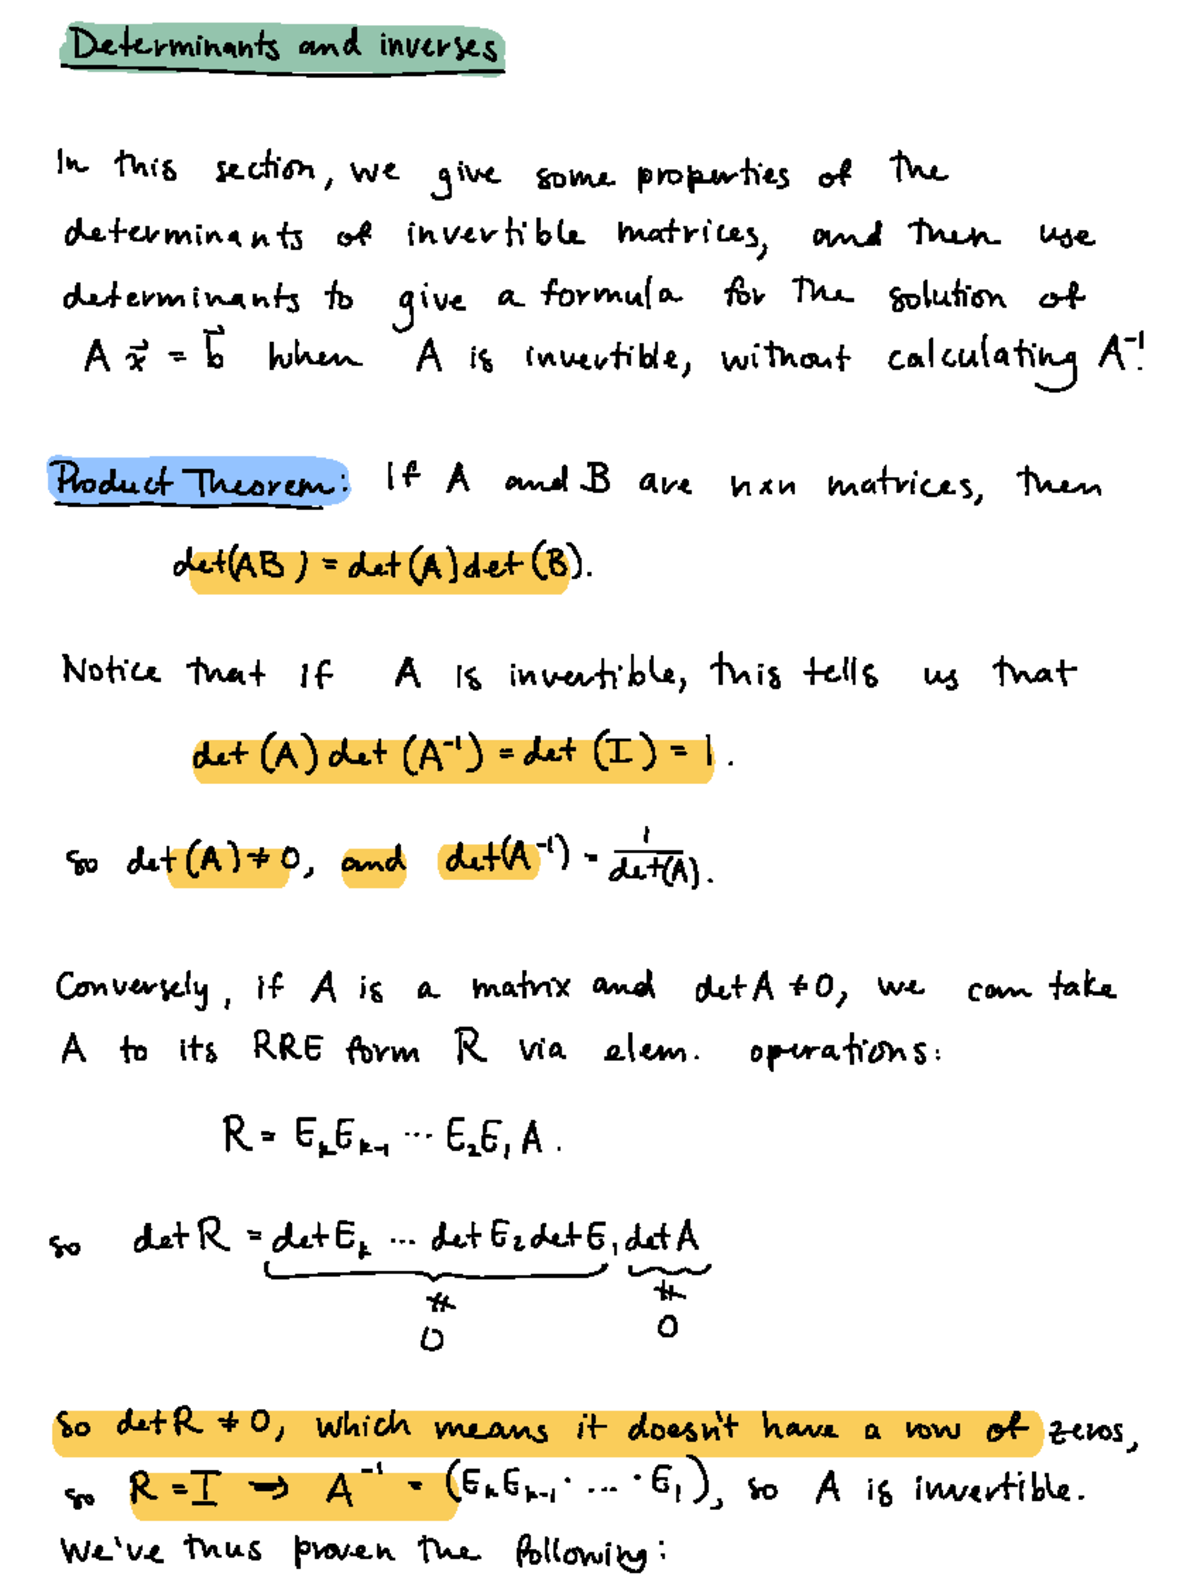 Determinants and inverses
In this section, we give some properties of the
determinants of invertible matrices, and then use
determinants to give a formula for the solution of
A x⃗ = b⃗ when A is invertible, without calculating A⁻¹!
Product Theorem: If A and B are n×n matrices, then
det(AB) = det(A)det(B).
Notice that if A is invertible, this tells us that
det(A)det(A⁻¹) = det(I) = 1.
so det(A) ≠ 0, and det(A⁻¹) = 1/det(A).
Conversely, if A is a matrix and det A ≠ 0, we can take
A to its RRE form R via elem. operations:
R = EₖEₖ₋₁ ... E₂E₁A.
so det R = det Eₖ ... det E₂ det E₁ det A
≠ ≠
0 0
so det R ≠ 0, which means it doesn't have a row of zeros,
so R = I → A⁻¹ = (EₖEₖ₋₁· ... ·E₁), so A is invertible.
We've thus proven the following: